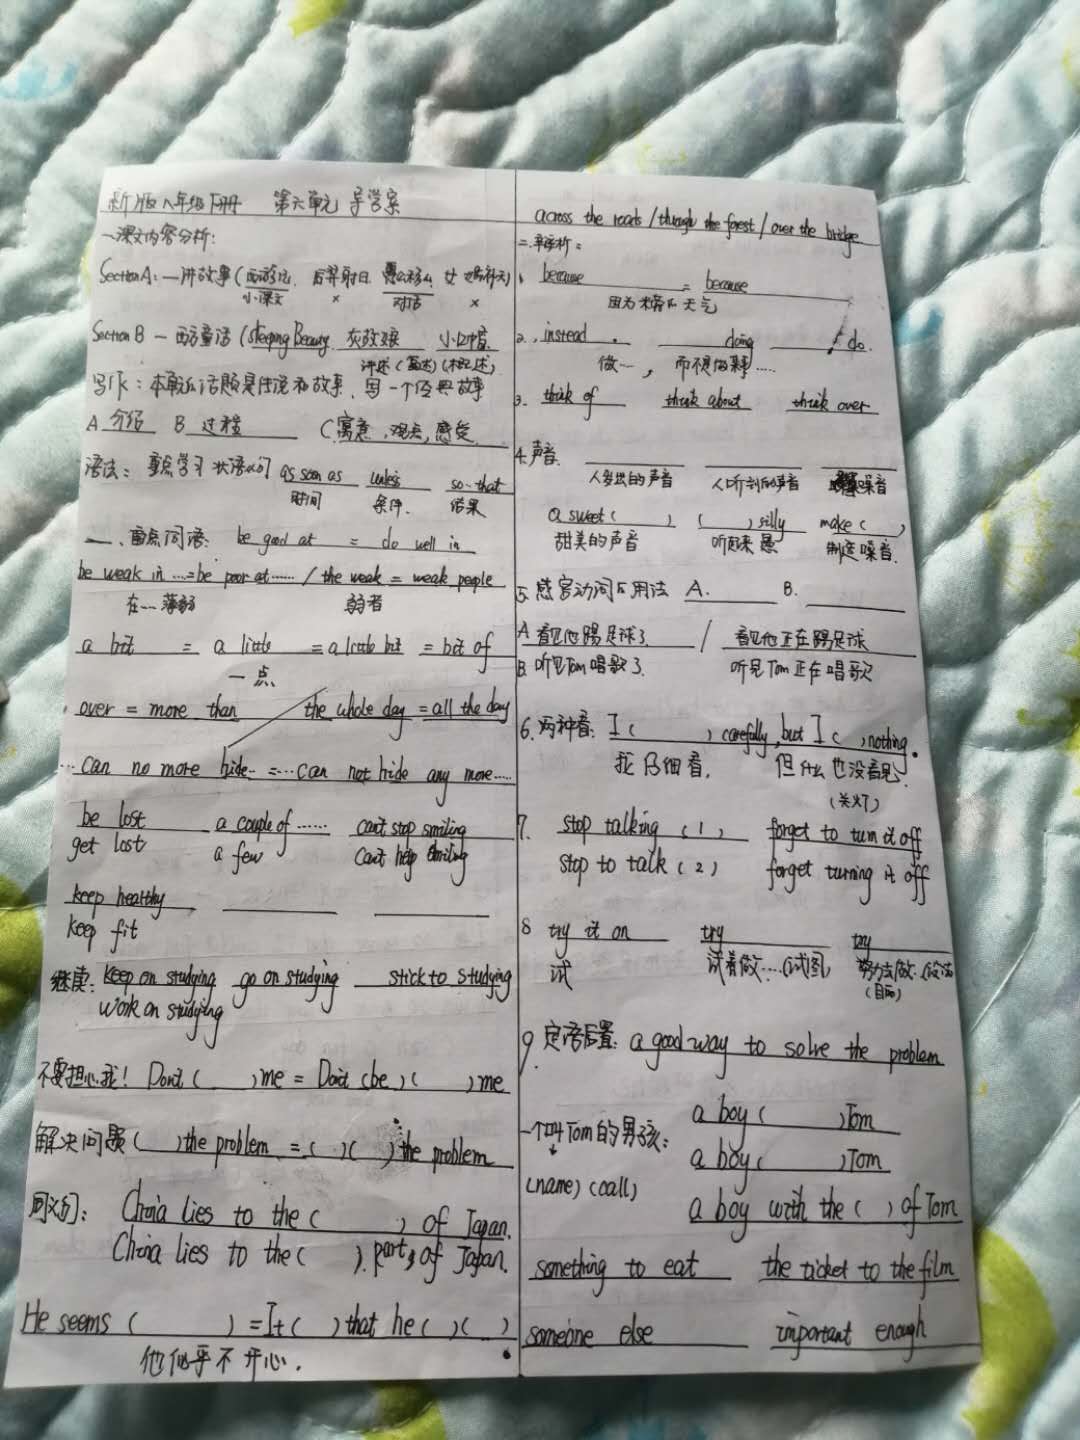 新版八年级下册 第六单元 导学案
一.课文内容分析:
Section A: 一讲故事(西游记, 后羿射日 愚公移山 女娲补天)
小课文 × 对话 ×
Section B — 西方童话 (Sleeping Beauty. 灰姑娘 小口
评述(复述)
写作: 本单元话题是传说和故事, 写一个经典故事
A 介绍 B 过程 C 寓意, 观点, 感受
语法: 重点学习 状语从句 as soon as unless so…that
时间 条件 结果
二、重点词语: be good at = do well in
be weak in ……=be poor at…… / the weak = weak people
在…薄弱 弱者
a bit = a little = a little bit = bit of
一点
over = more than the whole day = all the day
…can no more hide… =…can not hide any more……
be lost a couple of …… can't stop smiling
get lost a few can't help smiling
keep healthy
keep fit
继续: keep on studying go on studying stick to studying
work on studying
不要担心我! Don't ( )me = Don't (be )( )me
解决问题( )the problem = ( )( )the problem
同义句: China lies to the ( ) of Japan.
China lies to the ( ) part of Japan.
He seems ( ) =It ( ) that he ( )( )
他似乎不开心.
across the roads / through the forest / over the bridge
二.辨析:
1 because = because
因为糟糕天气
2. instead . doing / do.
做…, 而不是做某事……
3. think of think about think over
4.声音.
人发出的声音 人听到的声音 噪音
a sweet ( ) ( ) silly make ( )
甜美的声音 听起来愚 制造噪音.
5. 感官动词后用法 A. B.
A 看见他踢足球了 / 看见他正在踢足球
B. 听见Tom唱歌了 听见Tom正在唱歌
6.两种看: I ( ) carefully, but I ( )nothing.
我仔细看, 但什么也没看见.
(关灯)
7. stop talking (1) forget to turn it off
stop to talk (2) forget turning it off
8 try it on try try
试 试着做……(试图) 努力去做. (设法)
(目的)
9. 定语后置: a good way to solve the problem
a boy ( )Tom
一个叫Tom的男孩:
a boy ( )Tom
(name) (call)
a boy with the ( ) of Tom
something to eat the ticket to the film
someone else important enough